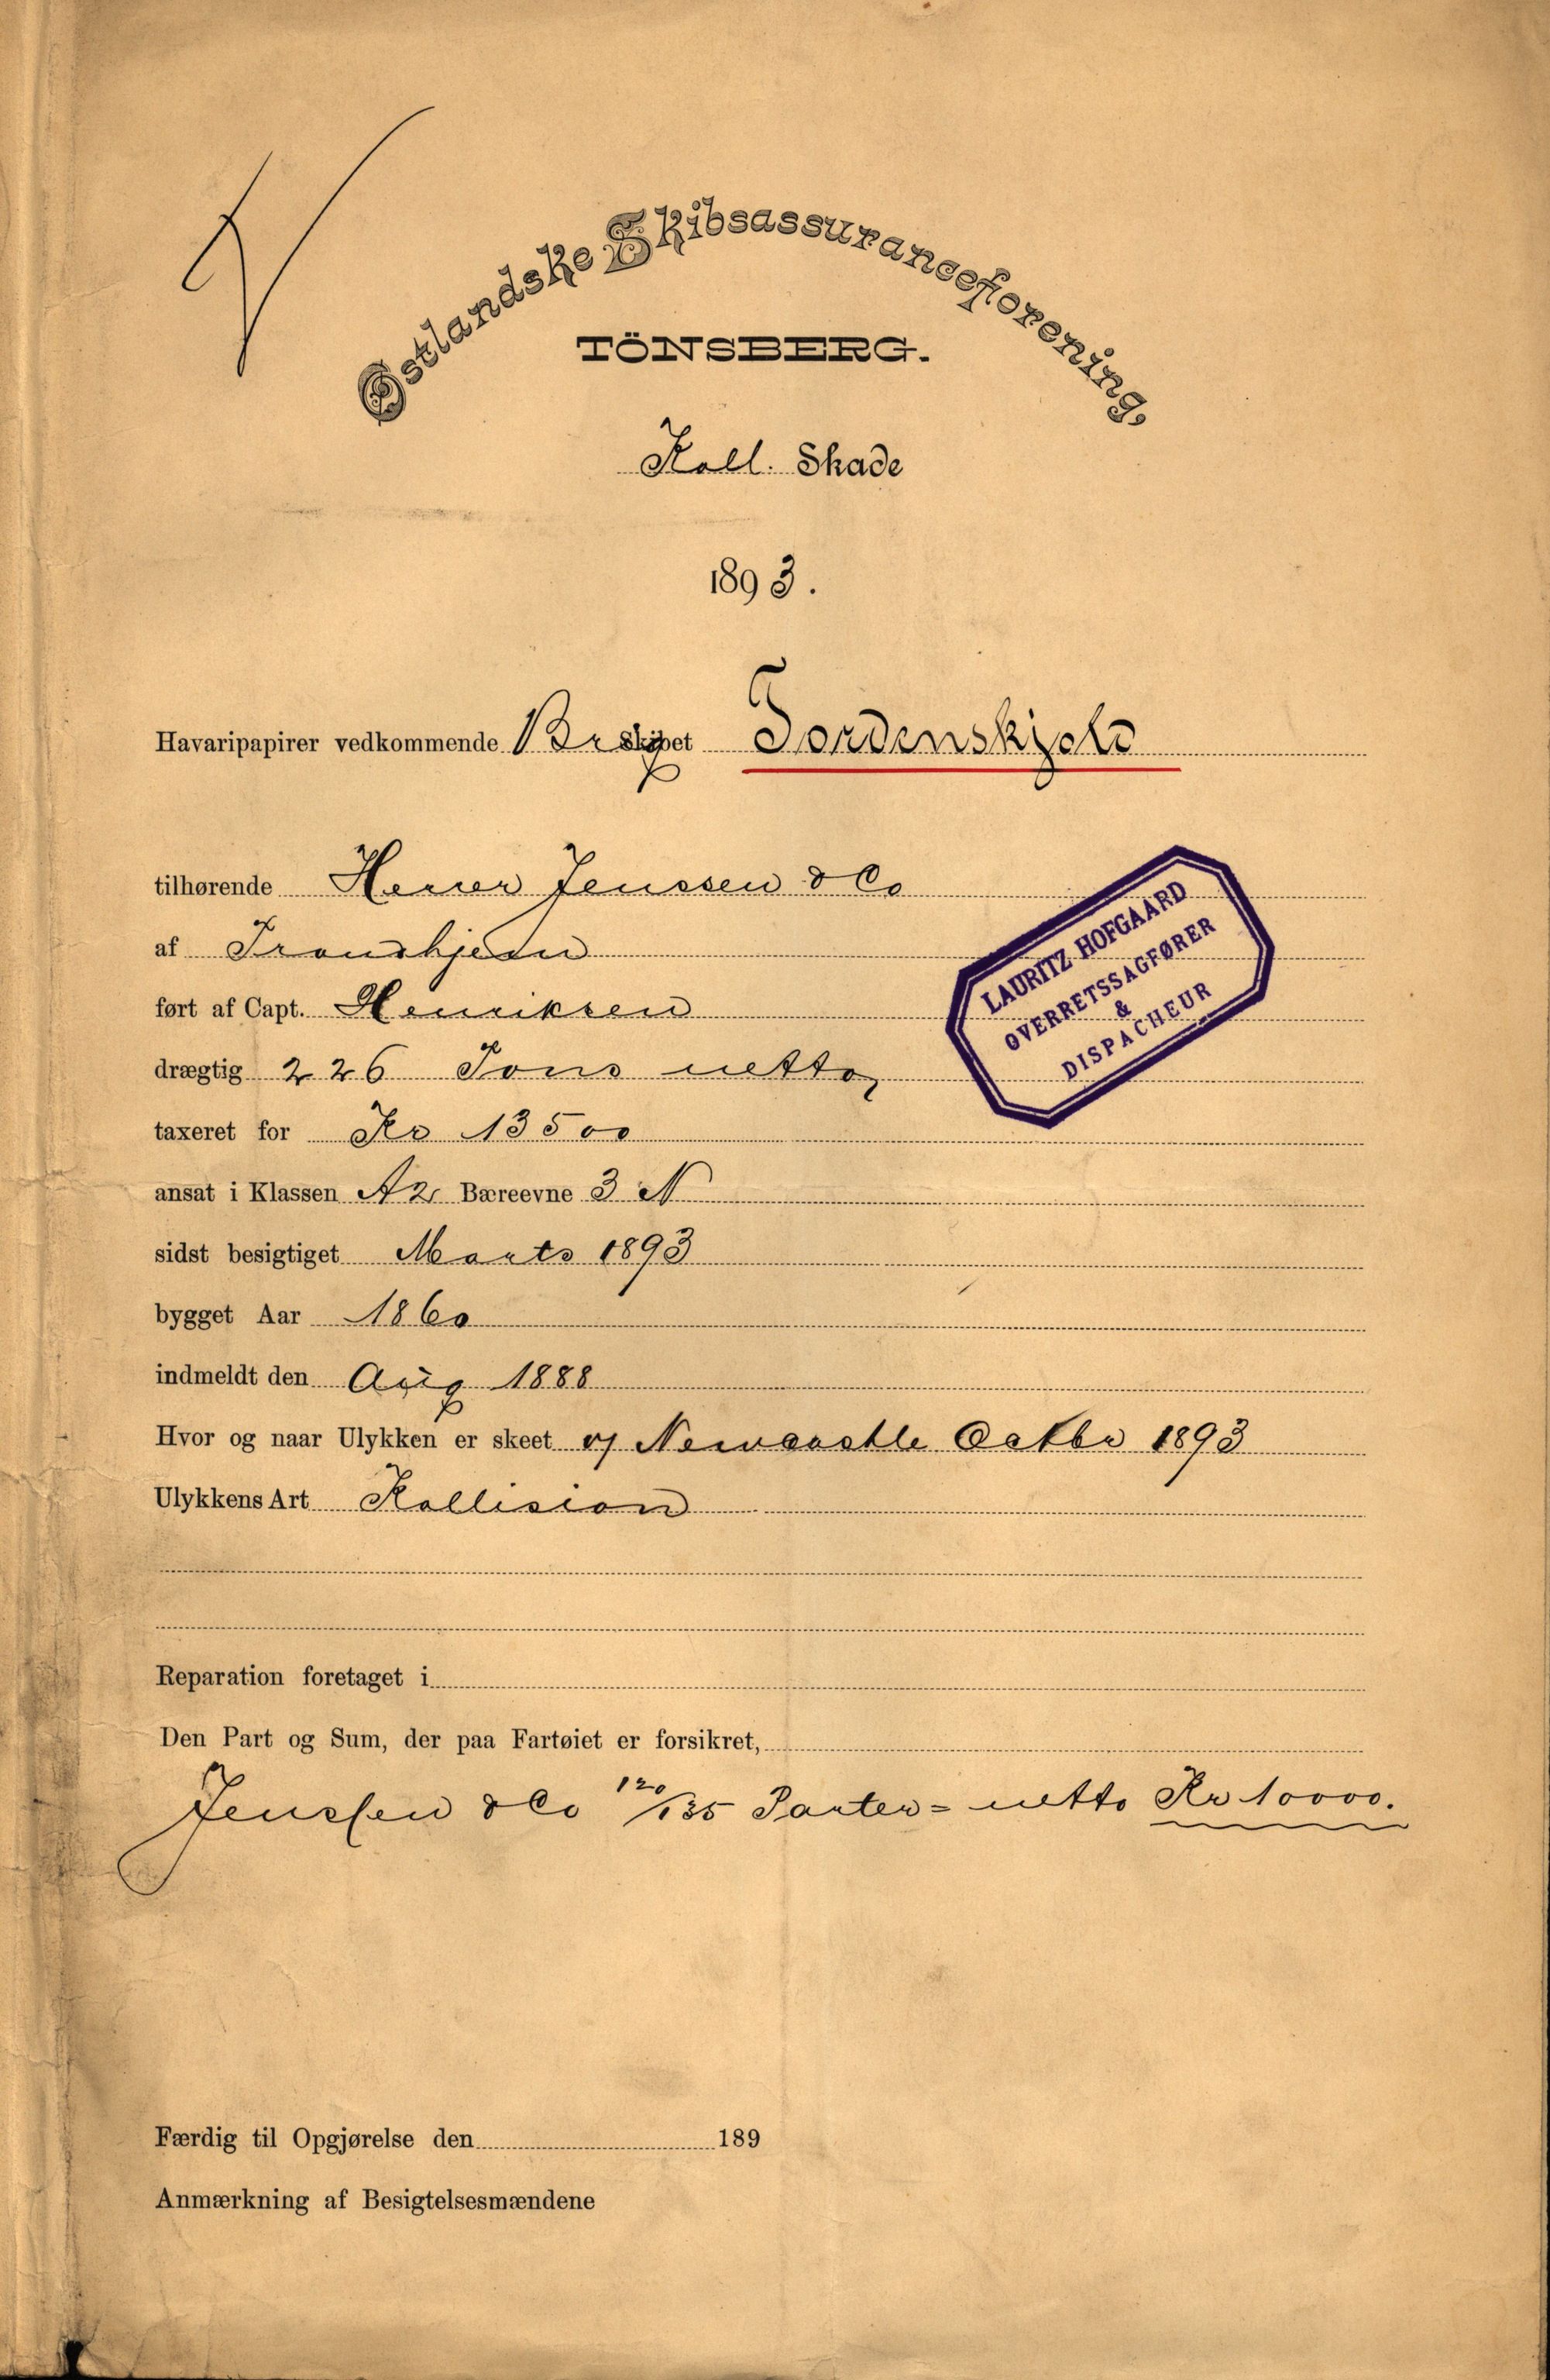 Østlandske Skibsassuranceforening,
TÖNSBERG.
Koll. Skade
1893.
Havaripapirer vedkommende Brig Skibet Tordenskjold
tilhørende Herrer Jenssen & Co
af Trondhjem
ført af Capt. Henriksen
drægtig 226 Tons netto,
taxeret for Kr 13500
ansat i Klassen A2 Bæreevne 3 N
sidst besigtiget Marts 1893
bygget Aar 1860
indmeldt den Aug 1888
Hvor og naar Ulykken er skeet v/ Newcastle Octbr 1893
Ulykkens Art Kollision
Reparation foretaget i
Den Part og Sum, der paa Fartøiet er forsikret,
Jenssen & Co 120/135 Parter = netto Kr 10000.
Færdig til Opgjørelse den 189
Anmærkning af Besigtelsesmændene
LAURITZ HOFGAARD
OVERRETSSAGFØRER
&
DISPACHEUR